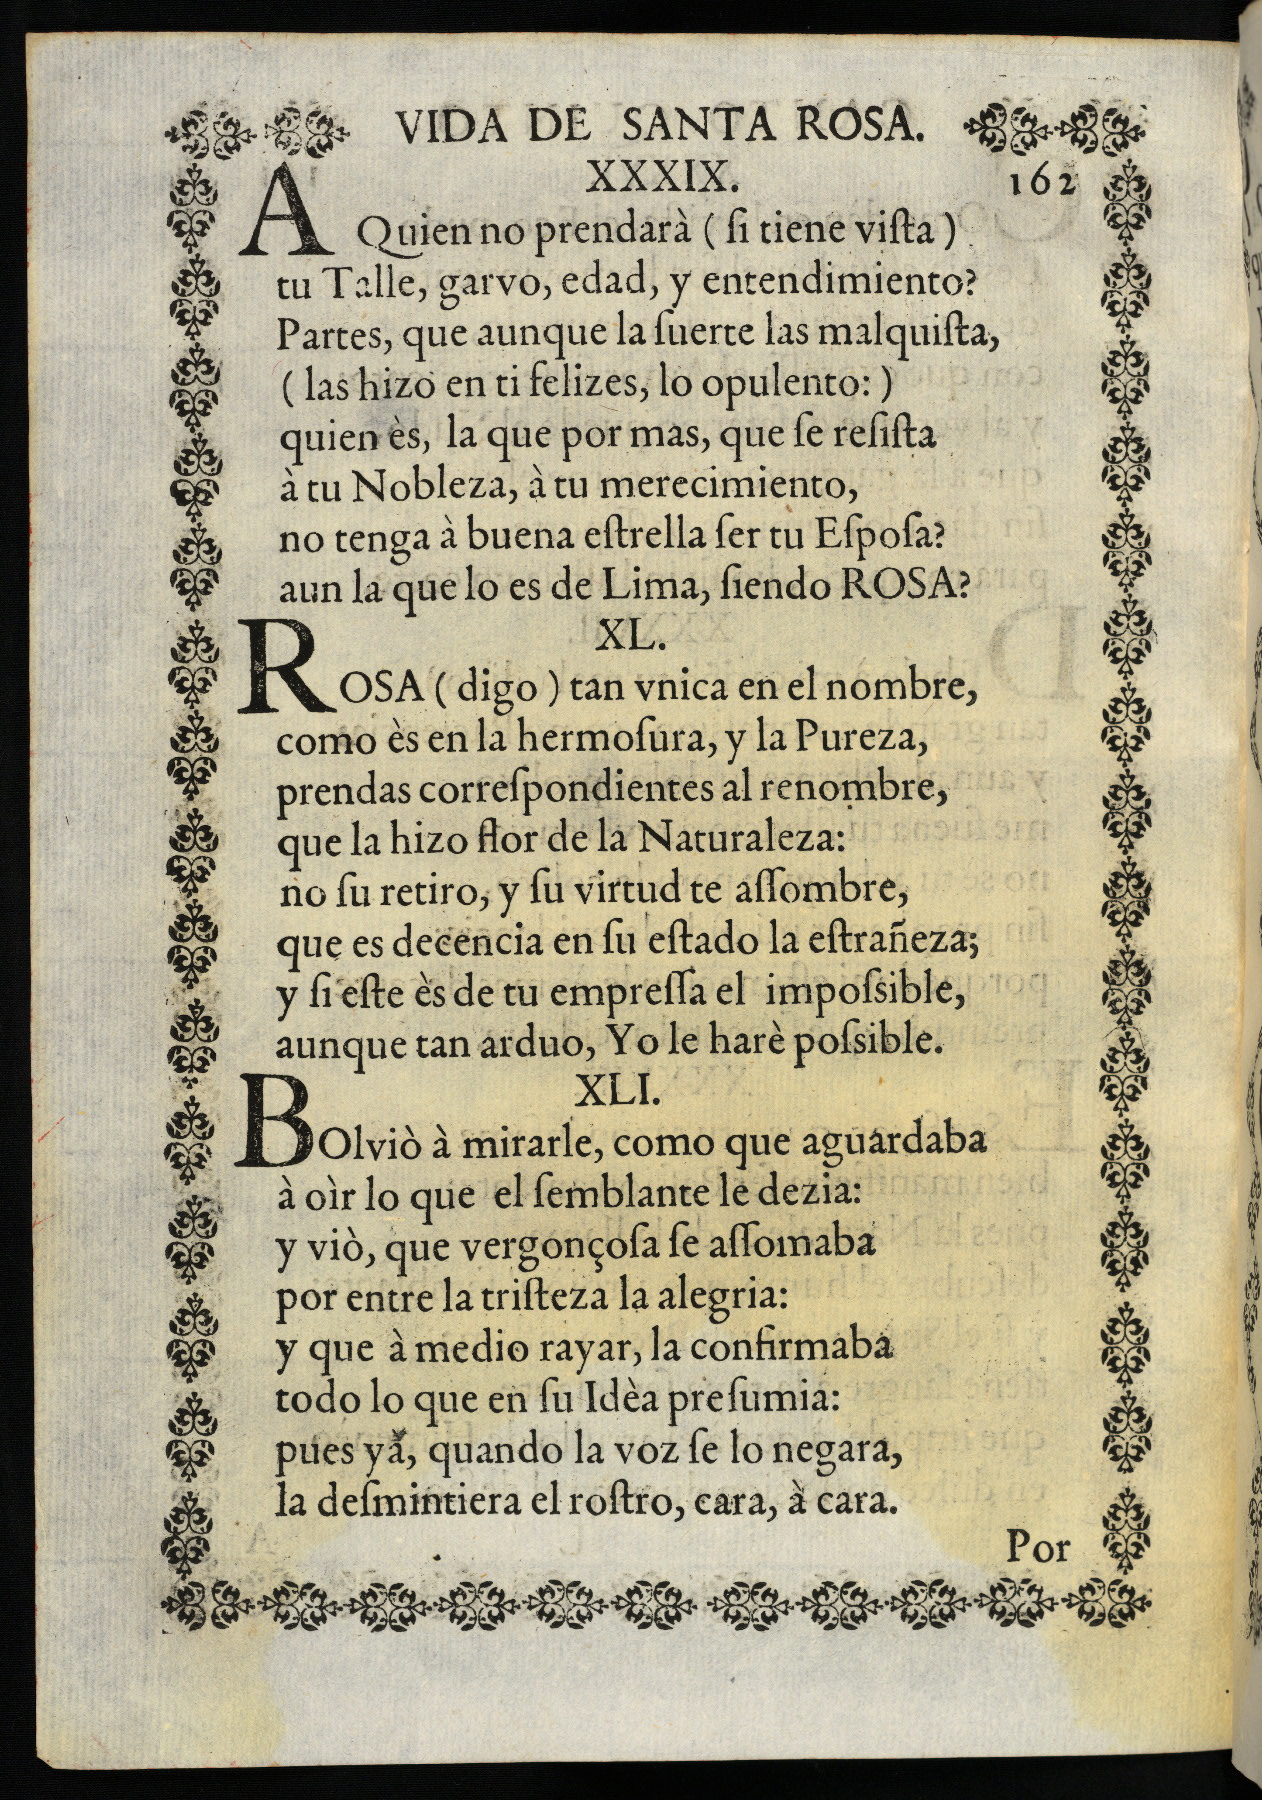 VIDA DE SANTA ROSA.
XXXIX. 162
A Quien no prendarà ( ſi tiene viſta )
tu Talle, garvo, edad, y entendimiento?
Partes, que aunque la ſuerte las malquiſta,
( las hizo en ti felizes, lo opulento: )
quien ès, la que por mas, que ſe reſiſta
à tu Nobleza, à tu merecimiento,
no tenga à buena eſtrella ſer tu Eſpoſa?
aun la que lo es de Lima, ſiendo ROSA?
XL.
ROSA ( digo ) tan vnica en el nombre,
como ès en la hermoſura, y la Pureza,
prendas correſpondientes al renombre,
que la hizo flor de la Naturaleza:
no ſu retiro, y ſu virtud te aſſombre,
que es decencia en ſu eſtado la eſtrañeza;
y ſi eſte ès de tu empreſſa el impoſsible,
aunque tan arduo, Yo le harè poſsible.
XLI.
BOlviò à mirarle, como que aguardaba
à oìr lo que el ſemblante le dezia:
y viò, que vergonçoſa ſe aſſomaba
por entre la triſteza la alegria:
y que à medio rayar, la confirmaba
todo lo que en ſu Idèa preſumia:
pues yà, quando la voz ſe lo negara,
la deſmintiera el roſtro, cara, à cara.
Por